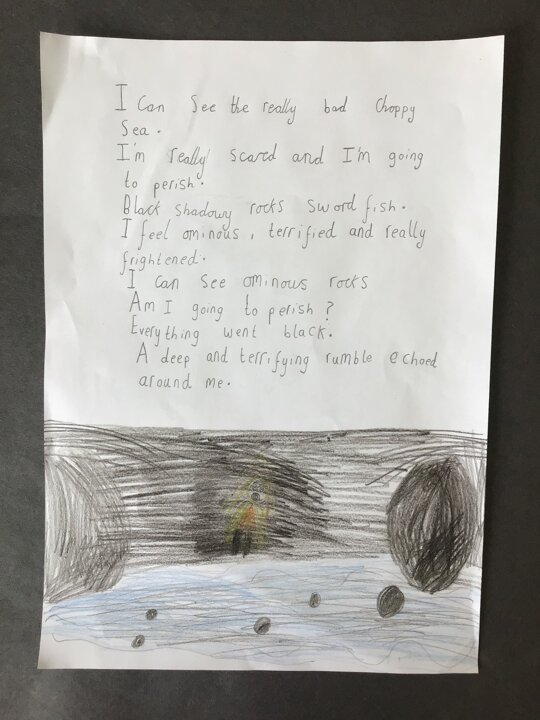 I Can See the really bad choppy
Sea.
I'm really scared and I'm going
to perish.
Black shadowy rocks sword fish.
I feel ominous, terrified and really
frightened.
I can see ominous rocks
Am I going to perish?
Everything went black.
A deep and terrifying rumble echoed
around me.